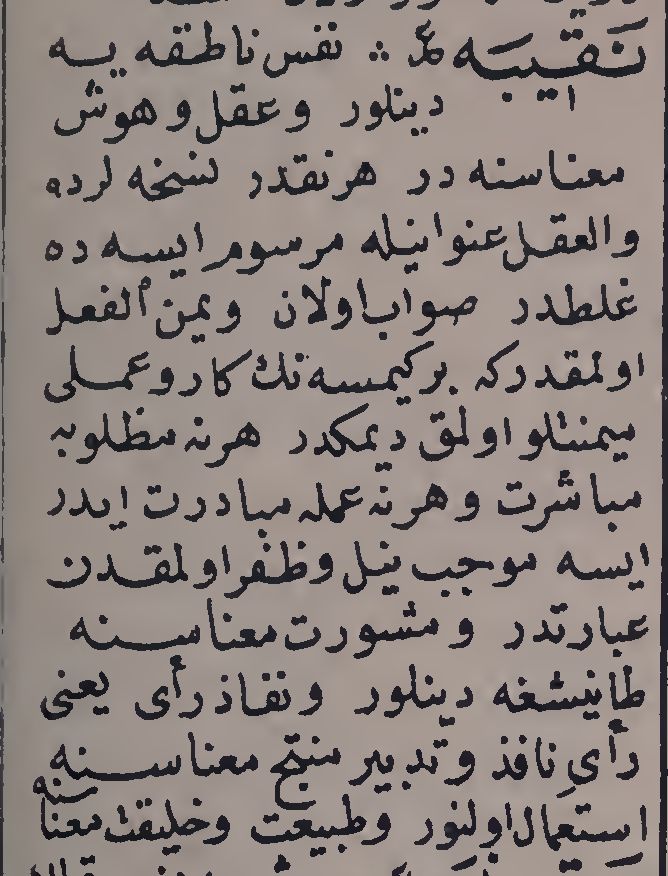 نَقيبَه ع م نفس ناطقه یه
دینلور وعقل وهوش
معناسنه در هرنقدر نسخه لرده
والعقل عنوانیله مرسوم ایسه ده
غلطدر صواب اولان ویمن الفعل
اولمقدرکه برکیمسه نك کار وعملی
یمنتلو اولمق دیمکدر هرنه مطلوبه
مباشرت وهرنه عمله مبادرت ایدر
ایسه موجب نیل وظفر اولمقدن
عبارتدر ومشورت معناسنه
طانیشغه دینلور ونفاذ رأی یعنی
رأیِ نافذ وتدبیر منتج معناسنه
استعمال اولنور وطبیعت وخلیقت معناسنه